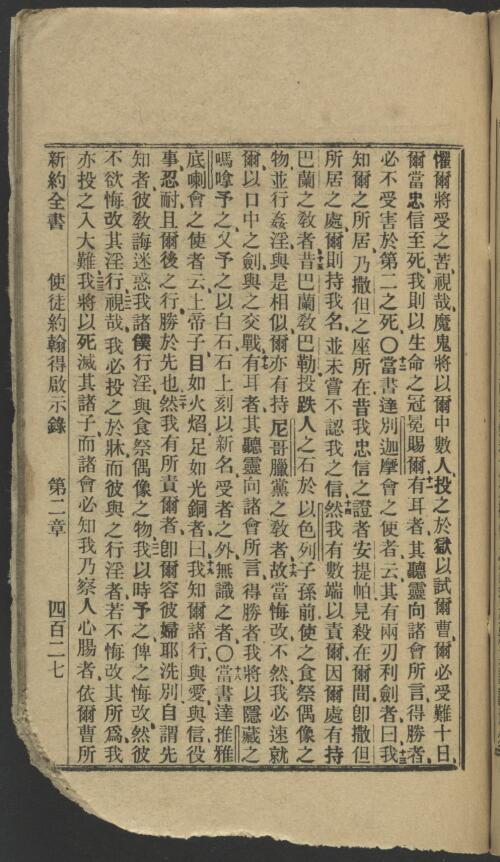 懼爾將受之苦、視哉、魔鬼將以爾中數人、投之於獄、以試爾曹、爾必受難十日、
爾當忠信至死、我則以生命之冠冕賜爾、十一有耳者、其聽靈向諸會所言、得勝者、
必不受害於第二之死、〇十二當書達別迦摩會之使者、云、其有兩刃利劍者曰、十三我
知爾之所居、乃撒但之座所在、昔我忠信之證者安提帕、見殺在爾間、卽撒但
所居之處、爾則持我名、並未嘗不認我之信、十四然我有數端以責爾、因爾處有持
巴蘭之敎者、昔巴蘭敎巴勒投跌人之石於以色列子孫前、使之食祭偶像之
物、並行姦淫、十五與是相似、爾亦有持尼哥臘黨之敎者、十六故當悔改、不然、我必速就
爾、以口中之劍、與之交戰、十七有耳者、其聽靈向諸會所言、得勝者、我將以隱藏之
嗎嗱予之、又予之以白石、石上刻以新名、受者之外、無識之者、〇十八當書達推雅
底喇會之使者、云、上帝子、目如火焰、足如光銅者曰、十九我知爾諸行、與愛、與信、役
事、忍耐、且爾後之行、勝於先也、二十然我有所責爾者、卽爾容彼婦耶洗別、自謂先
知者、彼敎誨迷惑我諸僕行淫、與食祭偶像之物、二一我以時予之、俾之悔改、然彼
不欲悔改其淫行、二二視哉、我必投之於牀、而彼與之行淫者、若不悔改其所爲、我
亦投之入大難、二三我將以死滅其諸子、而諸會必知我乃察人心腸者、依爾曹所
新約全書　使徒約翰得啟示錄　第二章　四百二七